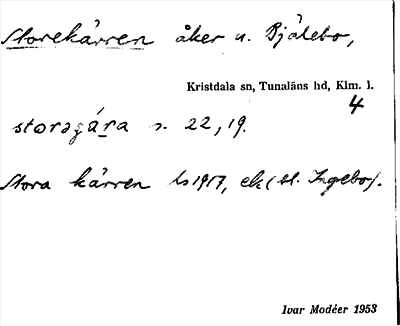 Storekärren åker u. Bjälebo,
Kristdala sn, Tunaläns hd, Klm. l.
4
storəgára s. 22, 19.
Stora kärren ls 1917, ek (bl. Ingebo).
Ivar Modéer 1953